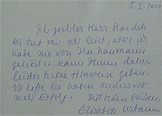 5.I.2000
Sehr geehrter Herr Handels
es tut mir sehr leid, aber ich
habe nie von Ihr Kaufmann
gehört u. kann Ihnen daher
leider keine Hinweise geben.
Ich hoffe Sie haben anderswo
mehr Erfolg.
Mit besten Grüßen,
Elisabeth